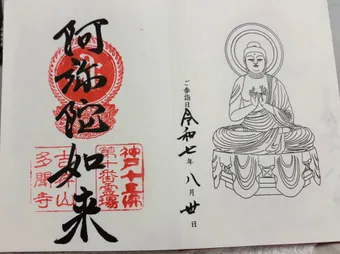 ご参詣日
令和七年八月廿日
阿弥陀如来
神戸十三佛
第十番霊場
吉祥山
多聞寺